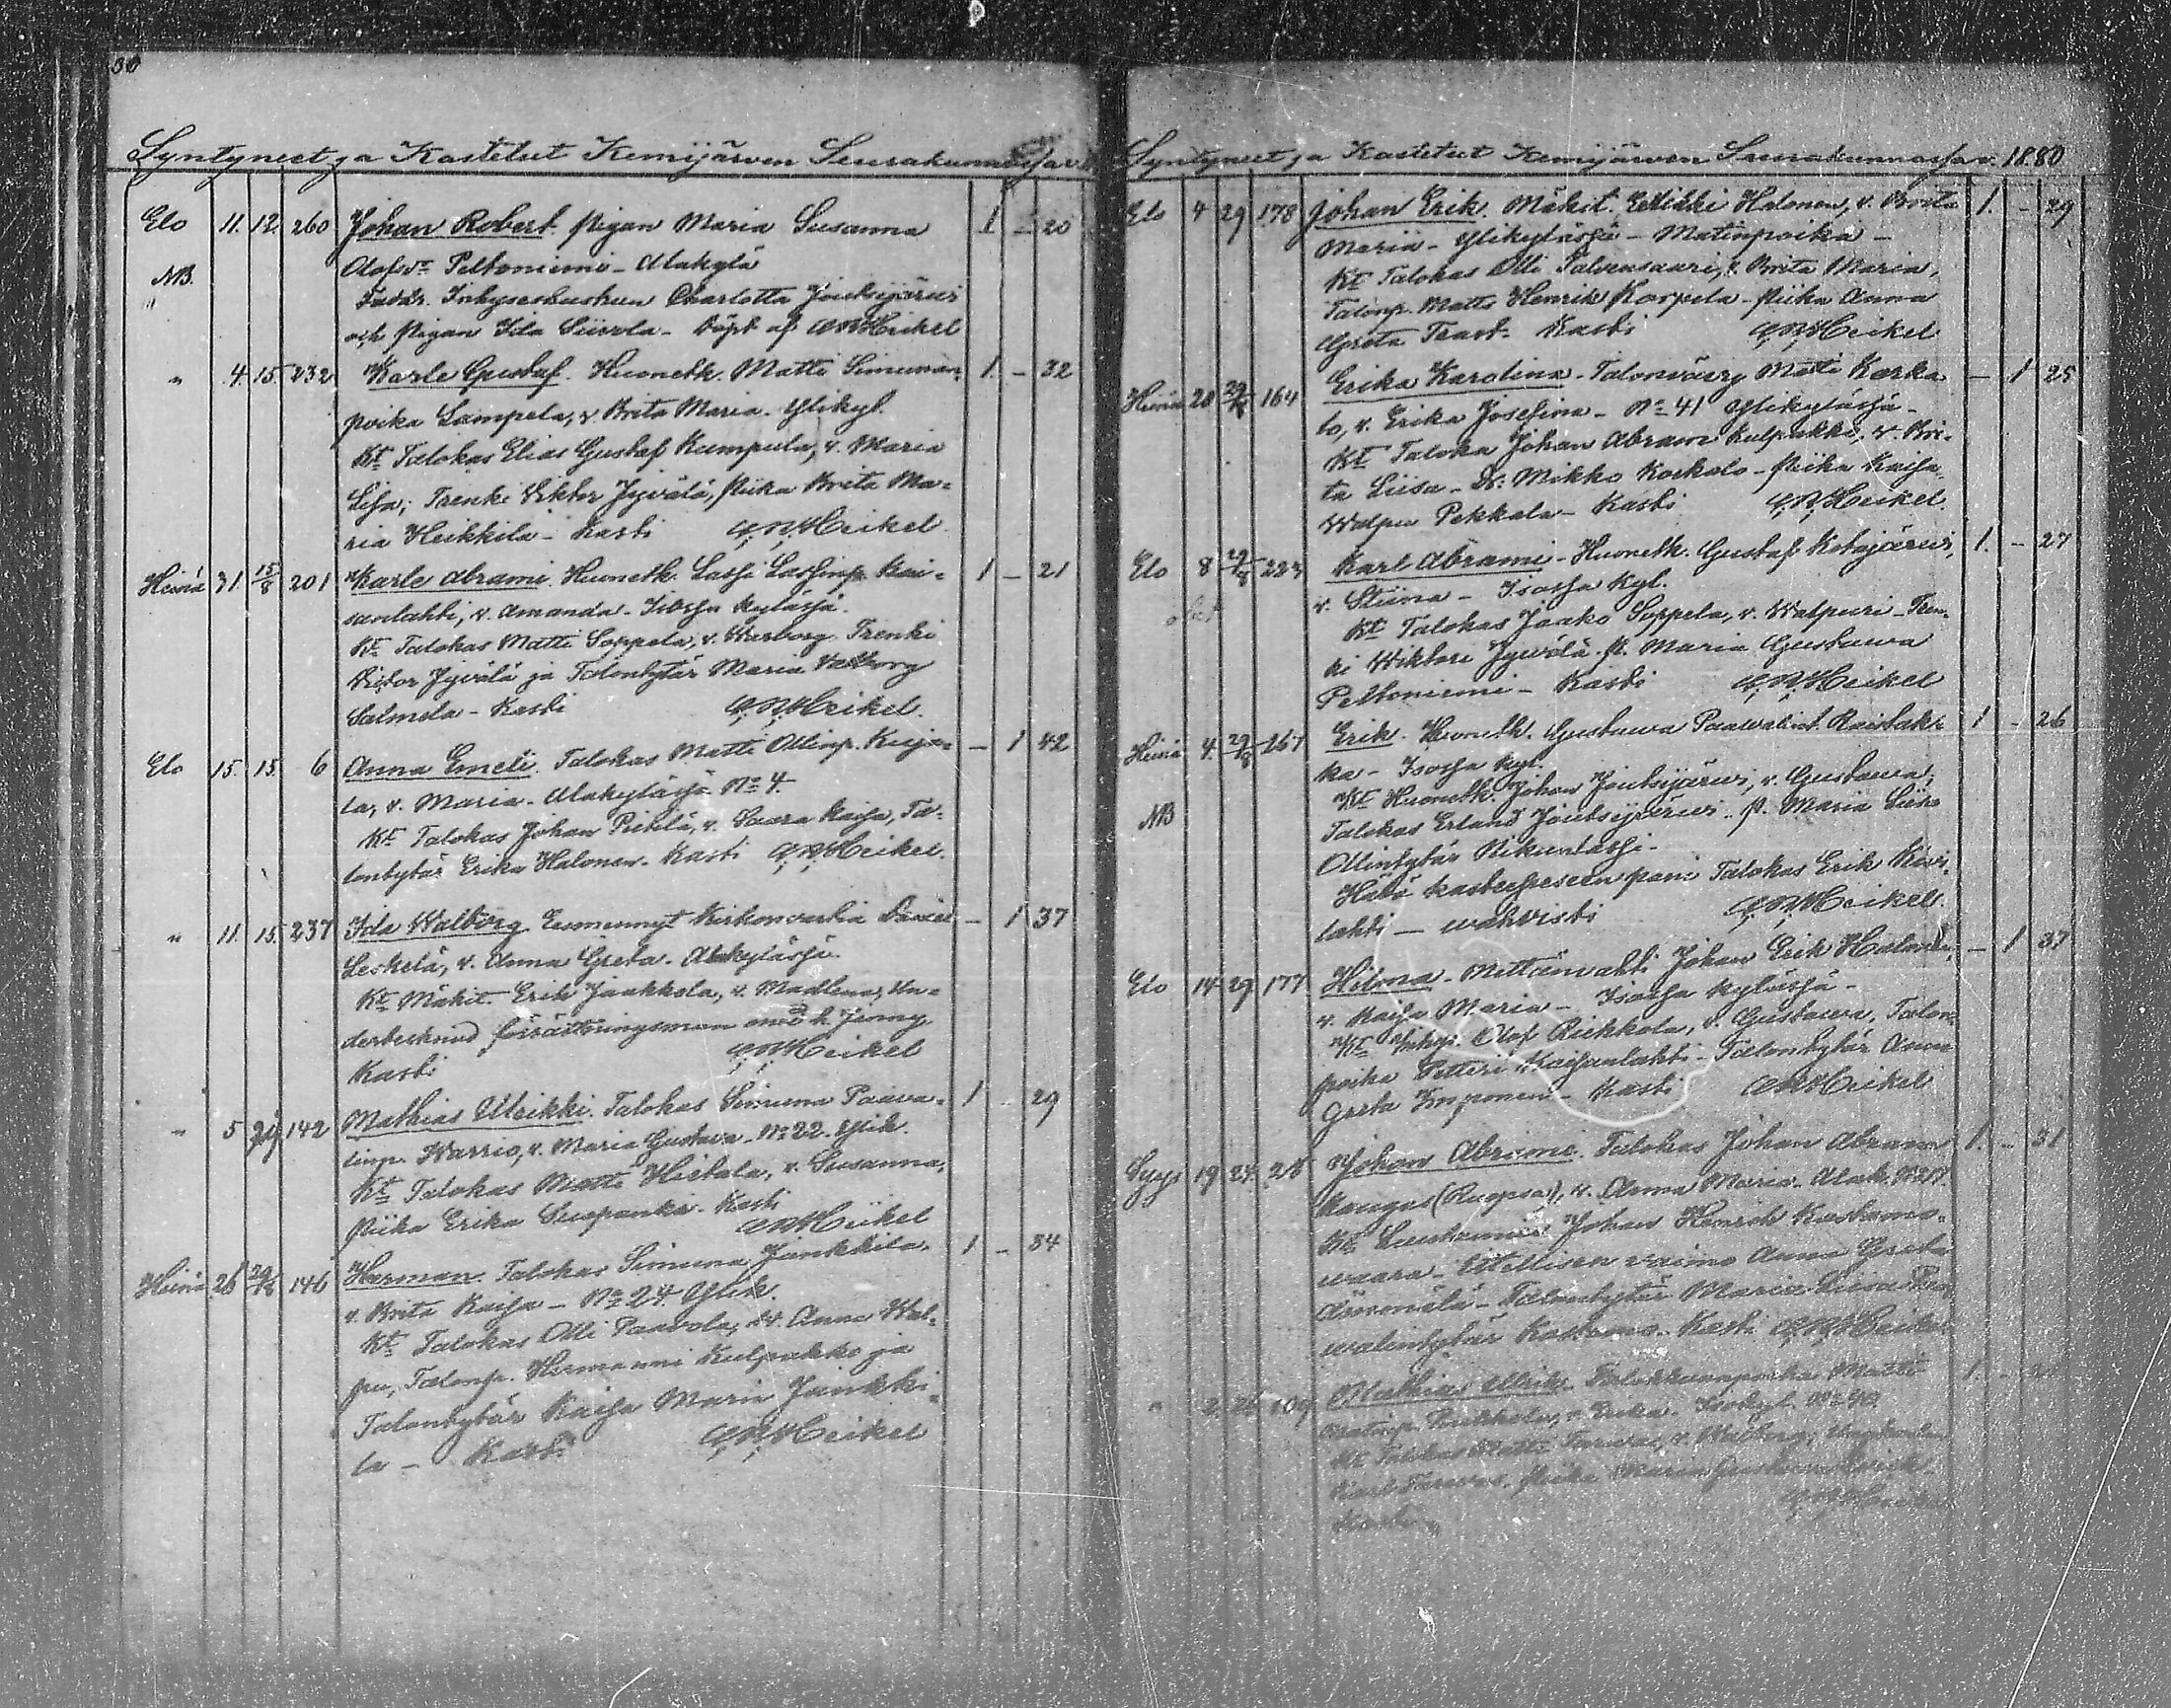 30
Syntyneet ja Kastetut Kemijärven Seurakunnassa v.
Elo 11. 12. 260 Johan Robert. Pigan Maria Susanna 1 - 20
Olofsdr Peltoniemi - Alakylä
NB. Faddr. Inhyseshustrun Charlotta Joutsijärvi
och Pigan Ida Siivola - Döpt af Heikel
" 4. 15. 232 Karle Gustaf. Huonetk. Matti Simunan 1. - 32
poika Lampela, v. Brita Maria. Ylikyl.
Kt Talokas Elias Gustaf Kumpula, v. Maria
Lisa; Trenki Viktor Jyvälä, Piika Brita Ma-
ria Heikkilä - Kasti Heikel
Heinä 31. 15/8 201 Karle Abrami. Huonetk. Lassi Lassinp. Kai- 1 - 21
sanlahti, v. Amanda - Isossa kylässä.
Kt Talokas Matti Soppela, v. Warborg. Trenki
Victor Jyvälä ja Talontytär Maria Walborg
Salmela - Kasti Heikel.
Elo 15. 15. 6 Anna Emeli. Talokas Matti Ollinp. Kuja- - 1 42
la, v. Maria - Alakylässä No 4.
Kt Talokas Johan Pietilä, v. Saara Kaisa, Ta-
lontytär Erika Halonen - Kasti Heikel.
" 11. 15. 237 Ida Walborg. Eesmennyt Kirkonvartia Daniel - 1 37
Leskelä, v. Anna Greta. Alakylässä.
Kt Mäkit. Erik Jaakkola, v. Madlena, Un-
dertecknad församlingsman med h. Jenny
Kasti Heikel
" 5 29 142 Mathias Ulrikki. Talokas Simuna Paava- 1 - 29
linp. Warrio, v. Maria Gustava. No 22. Ylik.
Kt Talokas Matti Hietala, v. Susanna,
Piika Erika Suopanki. Kasti
Heikel
Heinä 26 29/8 146 Herman. Talokas Simuna Jankkila, 1 - 34
v. Brita Kaisa - No 24. Ylik.
Kt Talokas Olli Paavola, v. Anna Wal-
pu, Talonp. Hermanni Kulpakko ja
Talontytär Kaisa Maria Jankki-
la - Kasti Heikel
Syntyneet ja Kastetut Kemijärven Seurakunnassa v. 1880
Elo 4 29 178 Johan Erik. Mäkit. Heikki Halonen, v. Brita 1. - 29
Maria - Ylikylässä - Matinpoika -
Kt Talokas Olli Talvensaari, v. Brita Maria,
Talonp. Matts Henrik Karpela - Piika Anna
Greta Trast - Kasti Heikel
Heinä 28 29/8 164 Erika Karolina - Talonvävy Matti Karka - 1 25
lo, v. Erika Josefina - No 41 Ylikylässä -
Kt Taloka Johan Abram Kulpakko, v. Bri-
ta Liisa - Dr: Mikko Karkalo - Piika Kaisa
Walpu Pekkala - Kasti Heikel.
Elo 8 29/8 223 Karl Abrami - Huonetk. Gustaf Kotajärvi, 1. - 27
v. Stiina - Isossa kyl.
Kt Talokas Jaako Soppela, v. Walpuri - Tren-
ki Wiktori Jyvälä. P. Maria Gustawa
Peltoniemi - Kasti Heikel
Heinä 4. 29/8 267 Erik. Huonetk. Gustawa Paawalint. Raistak- 1 - 26
ka - Isossa kyl.
Kt Huonetk. Johan Joutsijärvi, v. Gustawa,
NB Talokas Erland Joutsijärvi. P. Maria Liisa
Ollintytär Nikunlassi -
Hätä kasteeseen pani Talokas Erik Kivi-
lahti - wahvisti Heikel.
Elo 14 29 177 Hilma - Mettänvahti Johan Erik Halonen, - 1 37
v. Kaisa Maria - Isossa kylässä -
Kt Inhys. Olof Riekkola, v. Gustawa, Talon-
poika Petteri Kaisanlahti - Talontytär Anna
Greta Imponen - Kasti Heikel
Syys 19 24. 28 Johan Abrami. Talokas Johan Abram 1. - 31
Kangas (Ruopsa), v. Anna Maria - Alak. No 17.
Kt Luutamies Johan Henrik Kostamo-
waara - Itsellisen vaimo Anna Greta
Ämmälä - Talontytär Maria Liisa Paa-
walintytär Kostamo - Kasti Heikel
" 2. 26 109 Mathias Ulrik. Matti 1. -
v. Erika. Isokyl. No 40.
Kt Talokas Matti v. Walborg;
Karl Piika Maria
Kasti Heikel